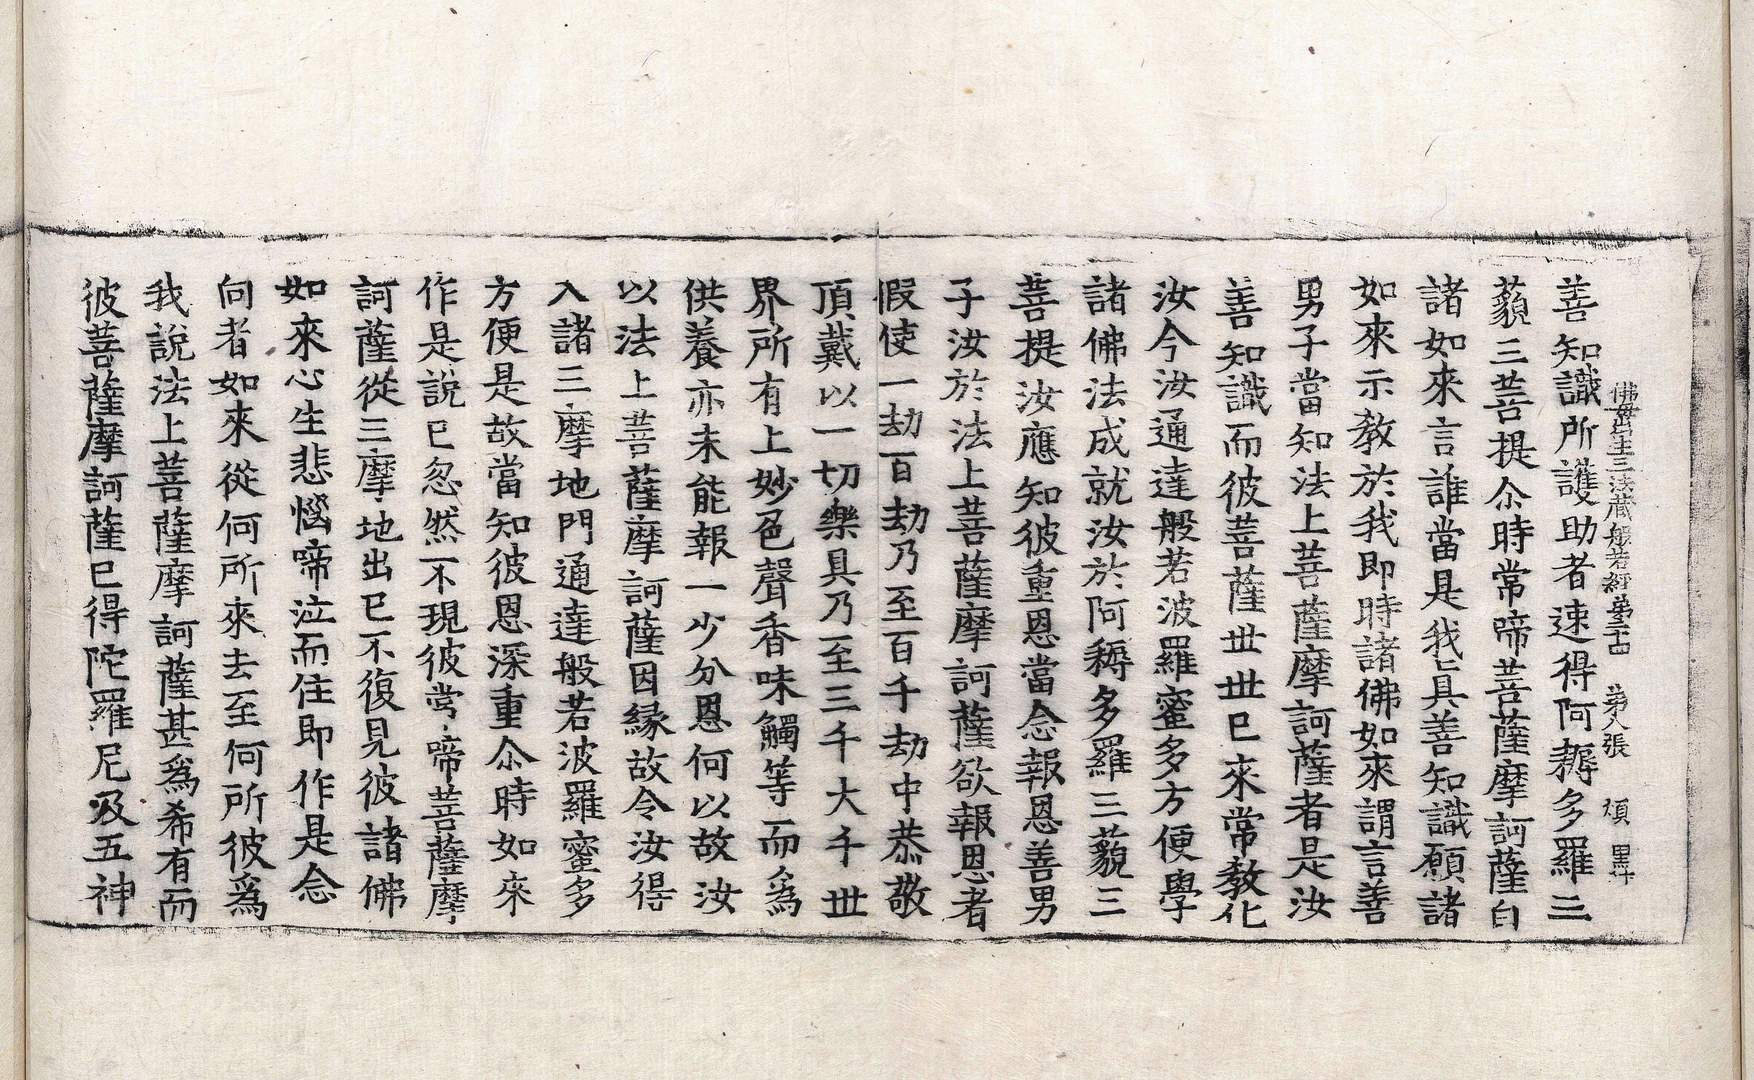 佛母出生三法藏般若經第二十四 第八張 頃
善知識所護助者速得阿耨多羅三
藐三菩提尒時常啼菩薩摩訶薩白
諸如來言誰當是我具善知識願諸
如來示教於我即時諸佛如來謂言善
男子當知法上菩薩摩訶薩者是汝
善知識而彼菩薩世世已來常教化
汝今汝通達般若波羅蜜多方便學
諸佛法成就汝於阿耨多羅三藐三
菩提汝應知彼重恩當念報恩善男
子汝於法上菩薩摩訶薩欲報恩者
假使一劫百劫乃至百千劫中恭敬
頂戴以一切樂具乃至三千大千世
界所有上妙色聲香味觸等而為
供養亦未能報一少分恩何以故汝
以法上菩薩摩訶薩因緣故令汝得
入諸三摩地門通達般若波羅蜜多
方便是故當知彼恩深重尒時如來
作是說已忽然不現彼常啼菩薩摩
訶薩從三摩地出已不復見彼諸佛
如來心生悲惱啼泣而住即作是念
向者如來從何所來去至何所彼為
我說法上菩薩摩訶薩甚為希有而
彼菩薩摩訶薩已得陀羅尼及五神